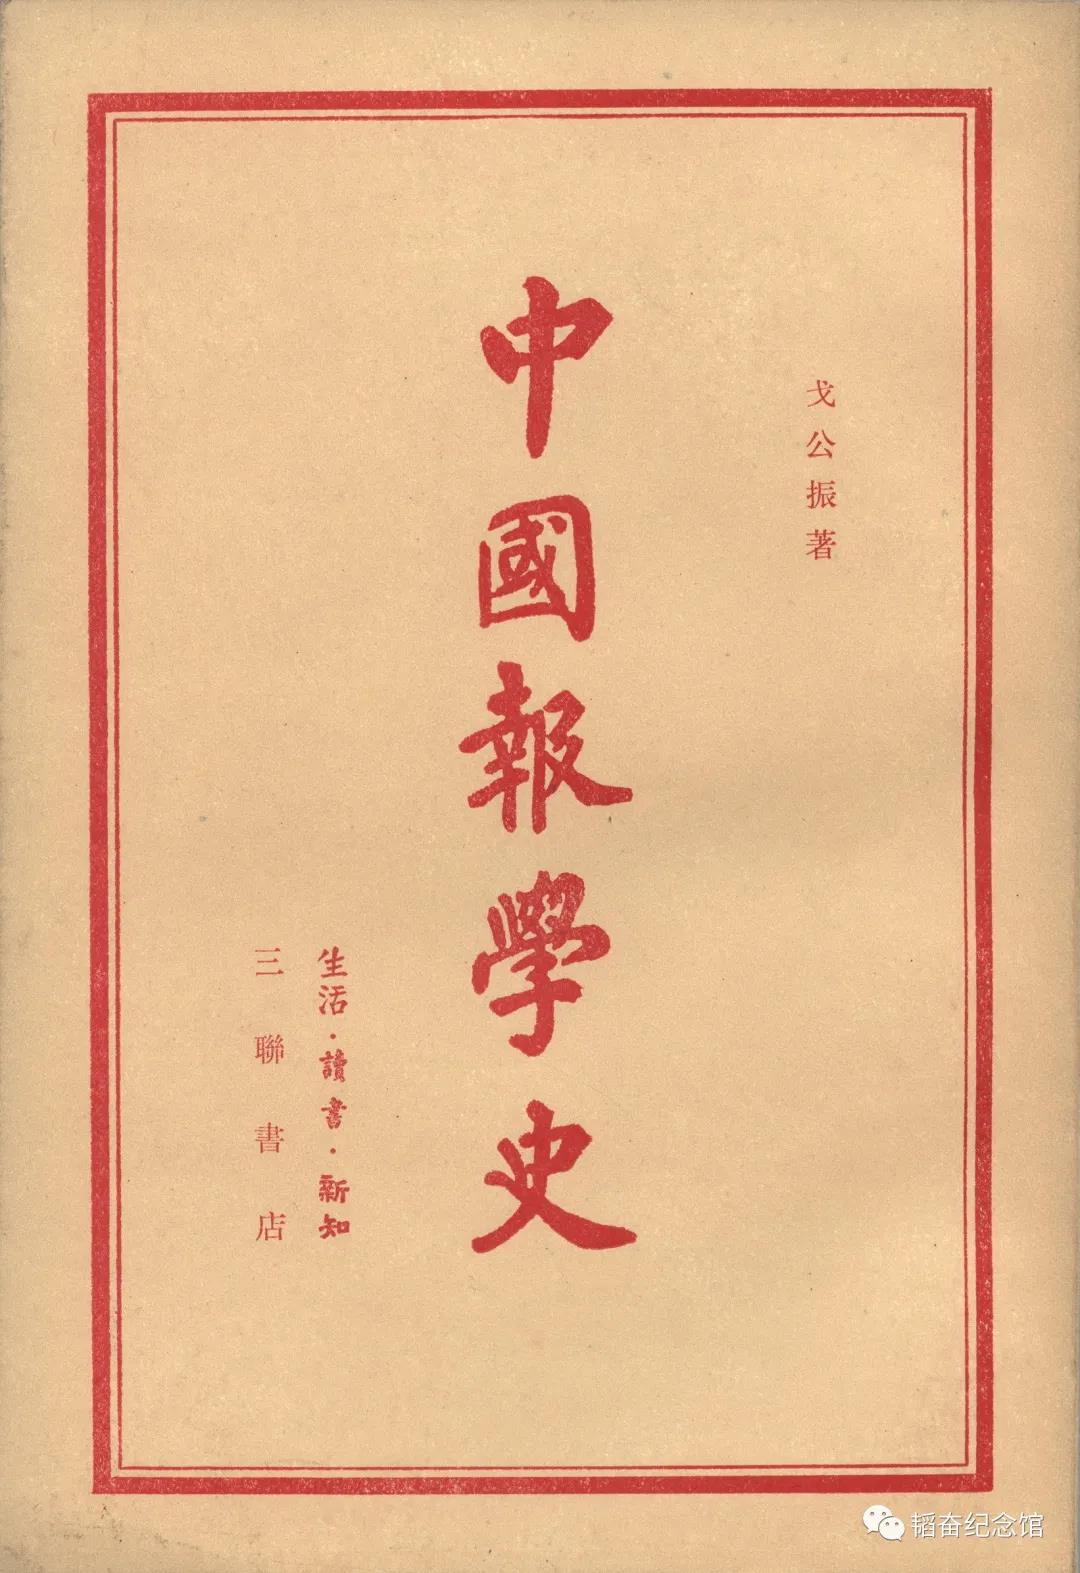 戈公振著
中國報學史
生活·讀書·新知
三聯書店
韬奋纪念馆